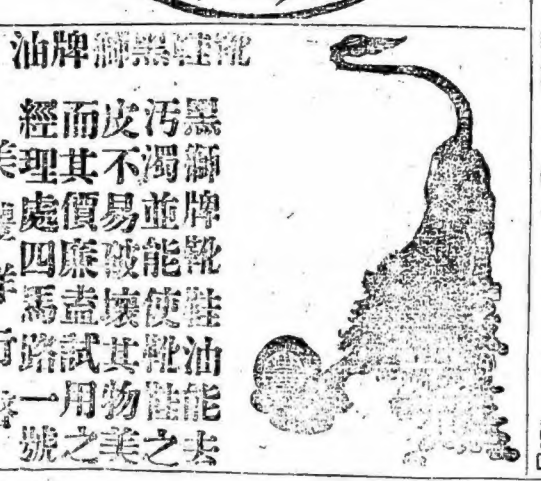 靴鞋黑獅牌油
黑獅牌靴鞋油能去
污濁並能使靴鞋之
皮不易破壞其物美
而其價廉盍試用之
經理處四馬路一號